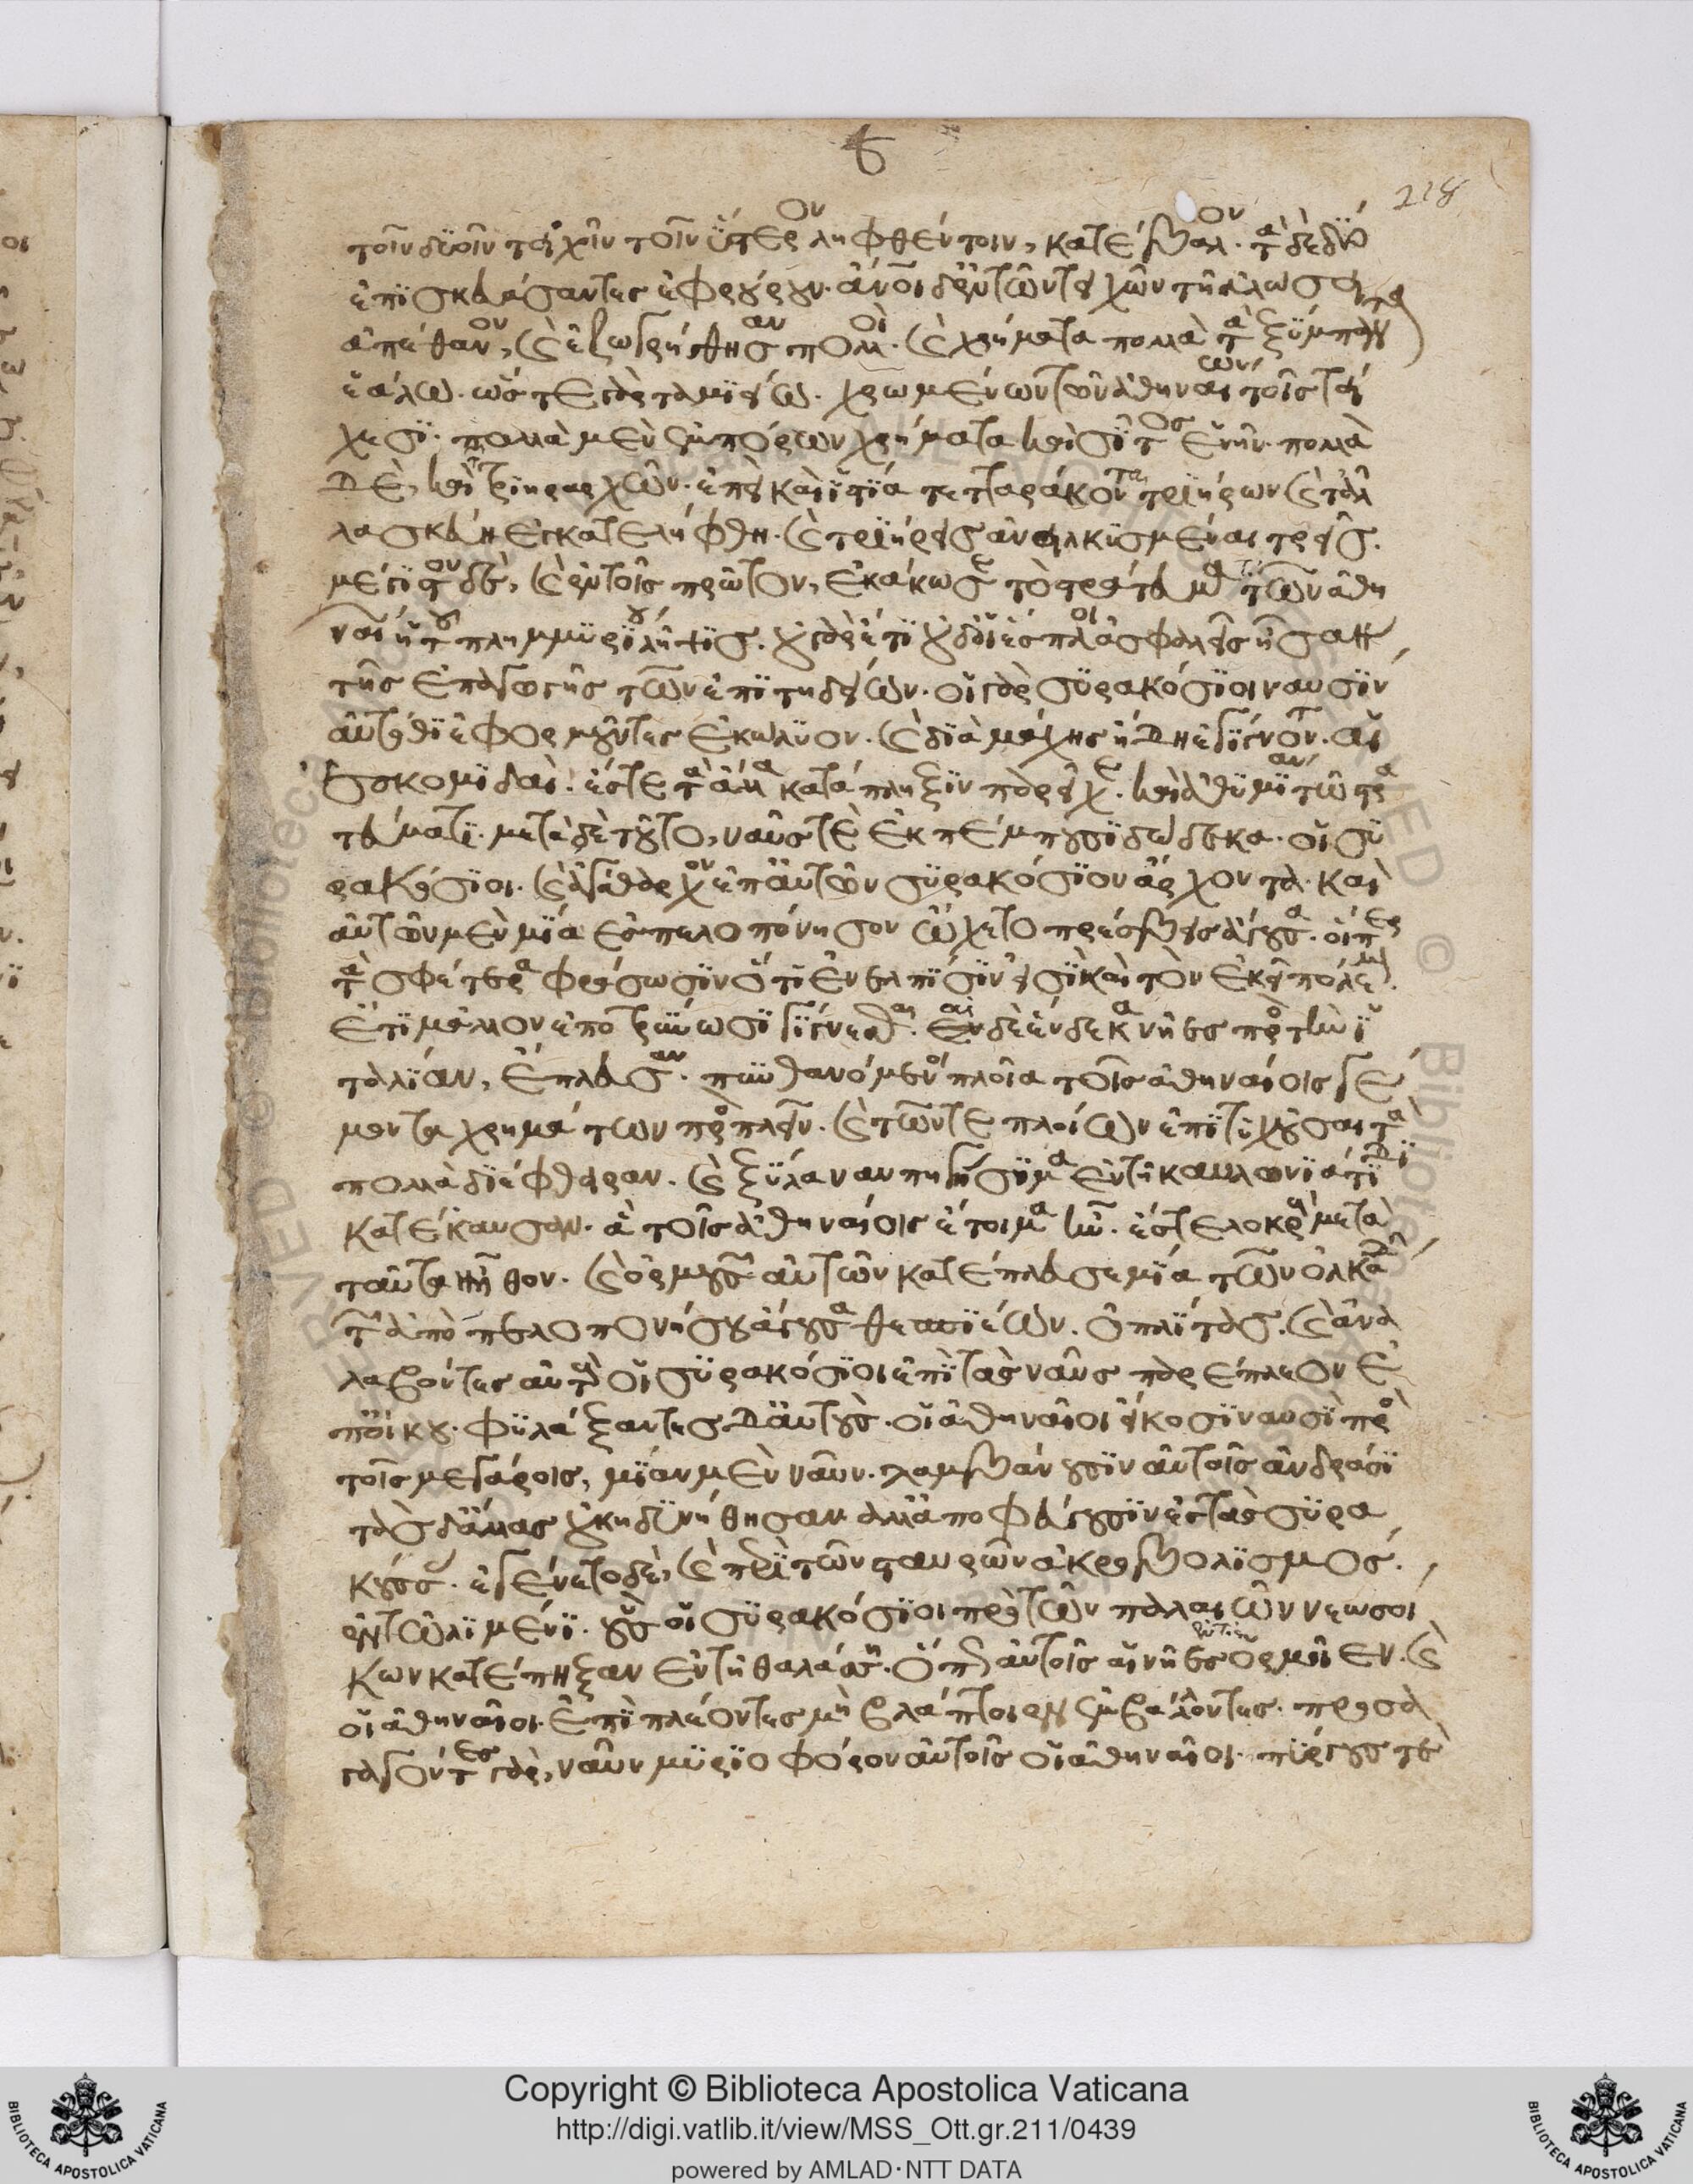 218
τοῖν δυοῖν τειχοῖν τοῖν ὕστερον ληφθέντοιν, κατέβαλον. τὰ δὲ δύο
ἐπισκευάσαντες ἐφρούρουν. ἄνοι δ' ἐν τῶν τειχῶν τῇ ἁλώσει
ἀπέθανον, καὶ ἐζωγρήθησαν πολλοί. καὶ χρήματα πολλὰ τὰ ξύμπαντα
ἑάλω. ὥστε γὰρ ταμιείω χρωμένων τῶν ἀθηναίων τοῖς τεί
χεσι. πολλὰ μὲν ἐμπόρων χρήματα καὶ σῖτος ἐνῆν. πολλὰ
δὲ, καὶ τριηράρχων. ἐπεὶ καὶ ἱστία τετταράκοντα τριήρων καὶ τἄλ
λα σκεύη ἐγκατελήφθη. καὶ τριήρεις ἀνειλκυσμέναι τρεῖς.
μέγιστον δὲ, καὶ ἐν τοῖς πρῶτον, ἐκάκωσε τὸ στράτευμα τῶν ἀθη
ναίων ἡ τοῦ πλημμυρίου λῆψις. οὐ γὰρ ἔτι οὐδ' οἱ ἔσπλοι ἀσφαλεῖς ἦσαν
τῆς ἐπαγωγῆς τῶν ἐπιτηδείων. οἱ γὰρ συρακόσιοι ναυσὶν
αὐτόθι ἐφορμοῦντες ἐκώλυον. καὶ διὰ μάχης ἤδη ἐγίγνοντο αἱ
ἐσκομιδαί. ἔς τε τὰ ἄλλα κατάπληξιν παρεῖχε. καὶ ἀθυμίαν τῷ στρα
τεύματι. μετὰ δὲ τοῦτο, ναῦς τὲ ἐκπέμπουσι δώδεκα. οἱ συ
ρακόσιοι. καὶ ἀγάθαρχον ἐπ' αὐτῶν συρακόσιον ἄρχοντα. καὶ
αὐτῶν μὲν μία ἐς πελοπόνησον ᾤχετο πρέσβεις ἄγουσα. οἵπερ
τὰ σφέτερα φράσωσιν ὅτι ἐν ἐλπίσιν εἰσὶ καὶ τὸν ἐκεῖ πόλεμον
ἔτι μᾶλλον ἐποτρύνωσι γίγνεσθαι. αἱ δὲ ἕνδεκα νῆες πρὸς τὴν ἰ
ταλίαν, ἔπλευσαν. πυνθανόμεναι πλοῖα τοῖς ἀθηναίοις γέ
μοντα χρημάτων προσπλεῖν. καὶ τῶν τε πλοίων ἐπιτυχοῦσαι τὰ
πολλὰ διέφθειραν. καὶ ξύλα ναυπηγήσιμα ἐν τῇ καυλωνιάτιδι
κατέκαυσαν. ἃ τοῖς ἀθηναίοις ἕτοιμα ἦν. ἔς τε λοκροὺς μετὰ
ταῦτα ἦλθον. καὶ ὁρμουσῶν αὐτῶν κατέπλευσε μία τῶν ὁλκάδων
τῶν ἀπὸ πελοπονήσου ἄγουσα θεσπιέων ὁπλίτας. καὶ ἀνα
λαβόντες αὐτοὺς οἱ συρακόσιοι ἐπὶ τὰς ναῦς παρέπλεον ἐ
π' οἴκου. φυλάξαντες δ' αὐτοὺς οἱ ἀθηναῖοι εἴκοσι ναυσὶ πρὸς
τοῖς μεγάροις, μίαν μὲν ναῦν λαμβάνουσιν αὐτοῖς ἀνδράσι
τὰς δ' ἄλλας οὐκ ἠδυνήθησαν ἀλλ' ἀποφεύγουσιν ἐς τὰς συρα
κούσας. ἐγένετο δὲ, καὶ περὶ τῶν σταυρῶν ἀκροβολισμὸς
ἐν τῷ λιμένι. οὓς οἱ συρακόσιοι πρὸ τῶν παλαιῶν νεωσοί
κων κατέπηξαν ἐν τῇ θαλάσσῃ. ὅπως αὐτοῖς αἱ νῆες ἐντὸς ὁρμοῖεν. καὶ
οἱ ἀθηναῖοι ἐπιπλέοντες μὴ βλάπτοιεν ἐμβάλλοντες. προσα
γαγόντες γὰρ, ναῦν μυριοφόρον αὐτοῖς οἱ ἀθηναῖοι πύργους τὲ
Copyright © Biblioteca Apostolica Vaticana
http://digi.vatlib.it/view/MSS_Ott.gr.211/0439
powered by AMLAD·NTT DATA
BIBLIOTECA APOSTOLICA VATICANA
BIBLIOTECA APOSTOLICA VATICANA